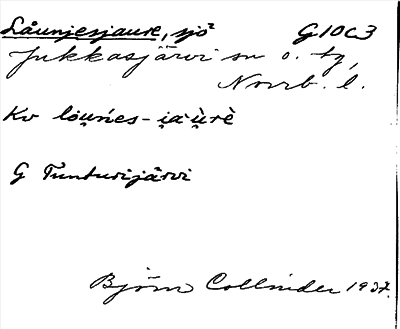 Låunjesjaure, sjö² G10c3
Jukkasjärvi sn o. tg,
Norrb. l.
Kv lo̯u̯ńes-i̯a·ù̯rè
G Tunturijärvi
Björn Collinder 1937.